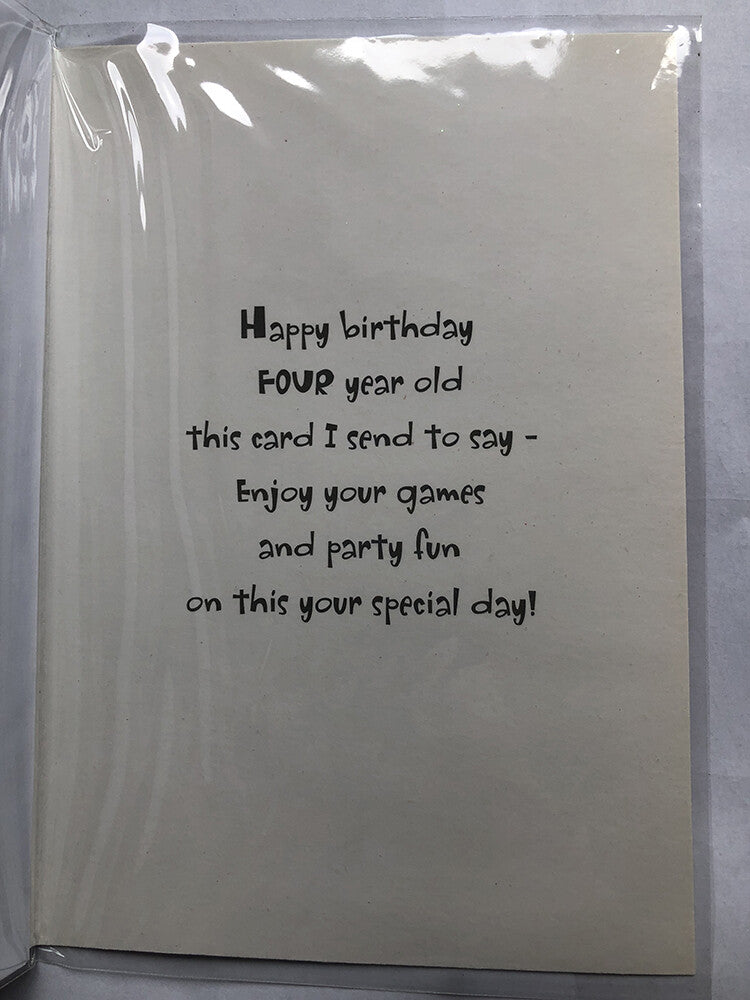 Happy birthday
FOUR year old
this card I send to say -
Enjoy your games
and party fun
on this your special day!